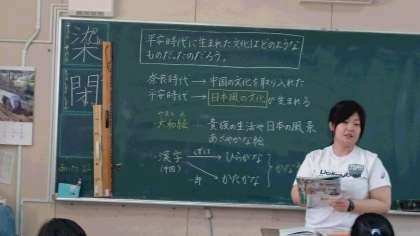 染
閉
平安時代に生まれた文化はどのような
ものだったのだろう。
奈良時代 → 中国の文化を取り入れた
平安時代 → 日本風の文化が生まれる
大和絵 … 貴族の生活や日本の風景
あざやかな絵
漢字 → ひらがな
(中国)
一部 かたかな
かな